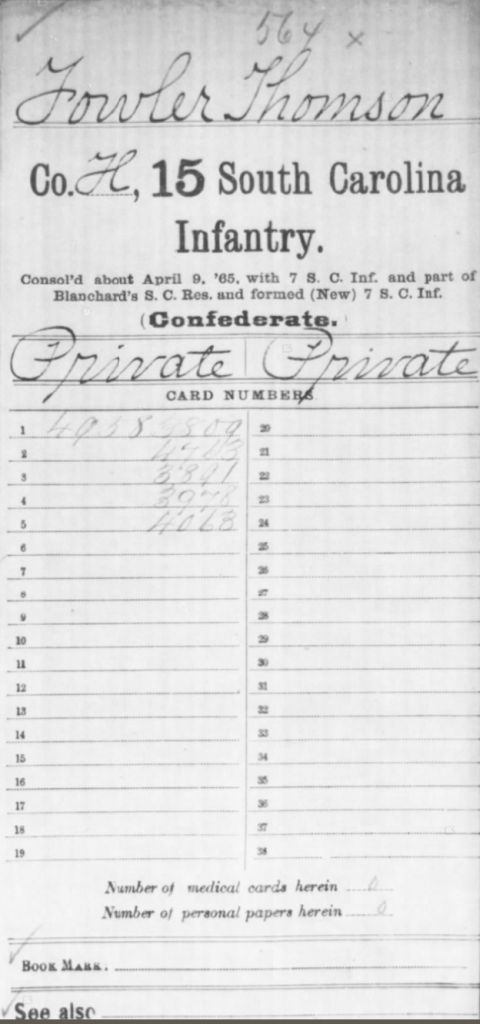 564 x
Fowler Thomson
Co. H, 15 South Carolina
Infantry.
Consol'd about April 9, '65, with 7 S. C. Inf. and part of
Blanchard's S. C. Res. and formed (New) 7 S. C. Inf.
(Confederate.)
Private Private
CARD NUMBERS
1 4958 9809 20
2 4743 21
3 3891 22
4 3978 23
5 4063 24
6 25
7 26
8 27
9 28
10 29
11 30
12 31
13 32
14 33
15 34
16 35
17 36
18 37
19 38
Number of medical cards herein 0
Number of personal papers herein 0
BOOK MARK:
See also